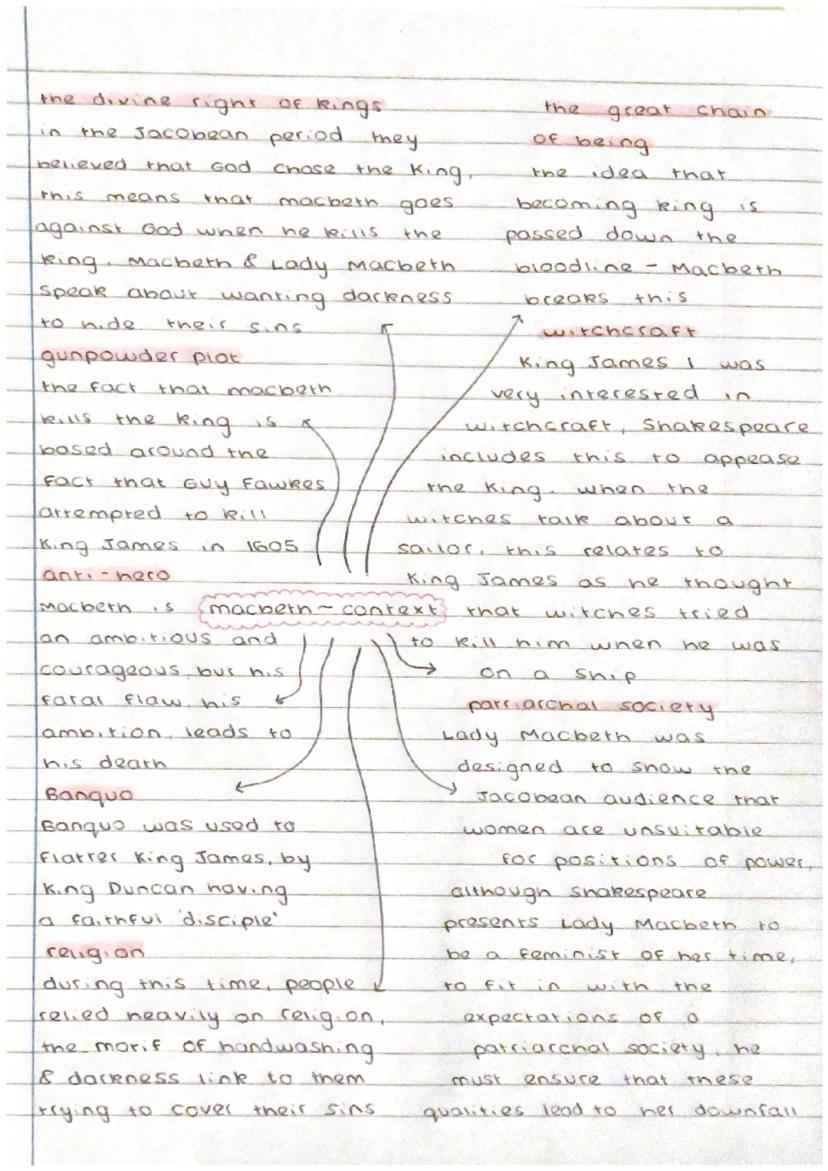 the divine right of kings
in the Jacobean period they
believed that God chose the King,
this means that macbeth goes
against God when he kills the
king. Macbeth & Lady Macbeth
speak about wanting darkness
to hide their sins
gunpowder plot
the fact that macbeth
kills the king is
based around the
fact that Guy Fawkes
attempted to kill
King James in 1605
anti-hero
Macbeth is
an ambitious and
courageous, but his
fatal flaw, his
ambition, leads to
his death
Banquo
Banquo was used to
flatter King James, by
King Duncan having
a faithful 'disciple'
religion
during this time, people
relied heavily on religion,
the motif of handwashing
& darkness link to them
trying to cover their sins
macbeth - context
the great chain
of being
the idea that
becoming king is
passed down the
bloodline - Macbeth
breaks this
witchcraft
King James I was
very interested in
witchcraft, Shakespeare
includes this to appease
the King. when the
witches talk about a
sailor, this relates to
King James as he thought
that witches tried
to kill him when he was
on a ship
patriarchal society
Lady Macbeth was
designed to show the
Jacobean audience that
women are unsuitable
for positions of power,
although Shakespeare
presents Lady Macbeth to
be a feminist of her time,
to fit in with the
expectations of a
patriarchal society, he
must ensure that these
qualities lead to her downfall